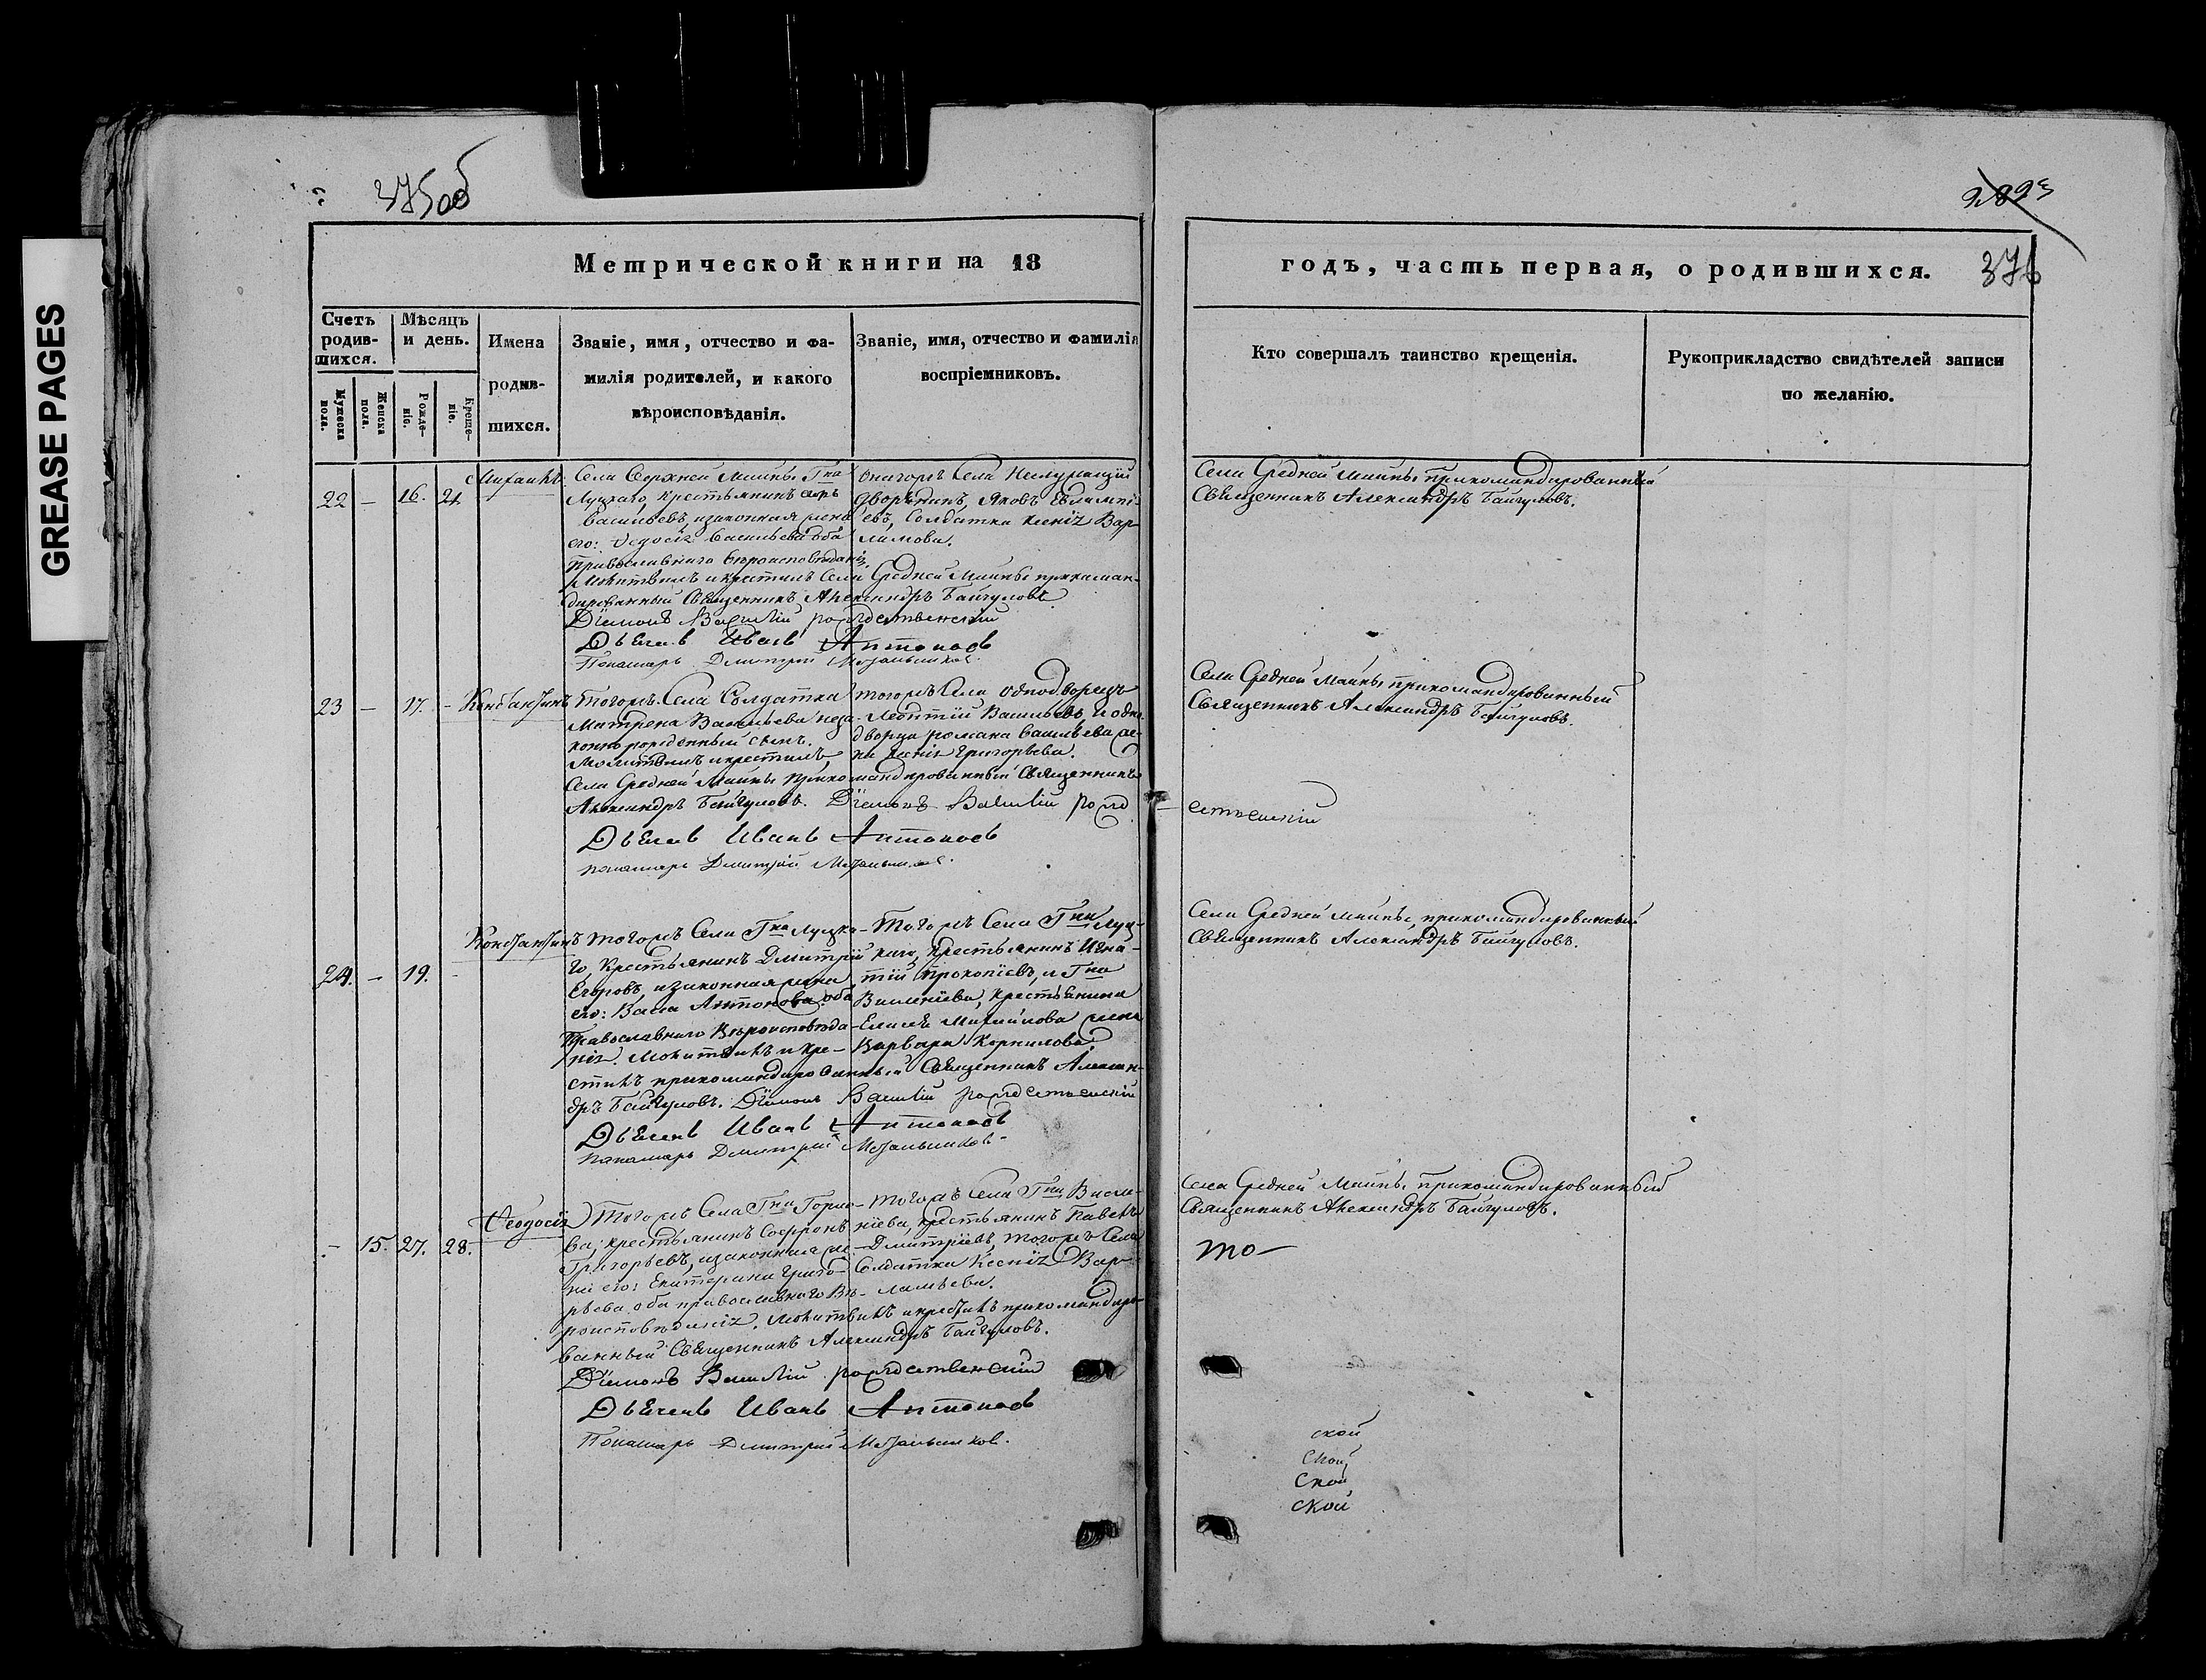 GREASE PAGES
375 об
376
Метрической книги на 18
годъ, часть первая, о родившихся.
Счетъ родив-шихся.
Мѣсяцъ и день.
Мужеска пола.
Женска пола.
Рожде-ніе.
Креще-ніе.
Имена
родив-
шихся.
Званіе, имя, отчество и фа-
милія родителей, и какого
вѣроисповѣданія.
Званіе, имя, отчество и фамилія
воспріемниковъ.
Кто совершалъ таинство крещенія.
Рукоприкладство свидѣтелей записи
по желанію.
22 – 16. 21. Михаилъ.
Села Верхней Майны Г-на
Луцкаго, крестьянинъ
Васильевъ, и законная жена
его: Ѳедосія Васильева оба
православнаго вѣроисповѣданія,
Молитвилъ и крестилъ Села Средней Майны прикоман-
дированный Священникъ Александръ Байгуловъ.
Діаконъ Василій рождественскій
Дьячекъ Иванъ Антоновъ
Понамарь Дмитрій
онагожъ Села
дворянинъ, Яковъ
евъ, Солдатка Ксенія Вар-
ламова.
Села Средней Майны прикомандированный
Священникъ Александръ Байгуловъ.
23 – 17. – Константинъ
тогожъ Села Солдатка
Матрена Васильева неза-
коннорожденный сынъ.
Молитвилъ и крестилъ
Села Средней Майны прикомандированный Священникъ
Александръ Байгуловъ. Діаконъ Василій рожд
ественскій
Дьячекъ Иванъ Антоновъ
понамарь Дмитрій
тогожъ Села однодворецъ
Леонтій Васильевъ, и одно-
дворца романа васильева же-
на Ксенія Григорьева.
Села Средней Майны прикомандированный
Священникъ Александръ Байгуловъ.
24. – 19. – Константинъ
тогожъ Села Г-на Луцка-
го, крестьянинъ Дмитрій
Егоровъ, и законная жена
его: Васа Антонова оба
Православнаго Вѣроисповѣда-
нія. Молитвилъ и кре-
стилъ прикомандированный Священникъ Алексан-
дръ Байгуловъ. Діаконъ Василій рождественскій
Дьячекъ Иванъ Антоновъ
понамарь Дмитрій
Тогожъ Села Г-на Луц-
каго, крестьянинъ Игна-
тій Прокопіевъ, и Г-на
крестьянина
Елисея Михайлова жена
Варвара Корнилова.
Села Средней Майны, прикомандированный
Священникъ Александръ Байгуловъ.
– 15. 27. 28. Ѳеодосія
Тогожъ Села Г-на
ва, крестьянинъ Софронъ
Григорьевъ, и законная же-
на его: Екатерина Григо-
рьева оба православнаго Вѣ-
роисповѣданія. Молитвилъ и крестилъ прикомандиро-
ванный Священникъ Александръ Байгуловъ.
Діаконъ Василій рождественскій
Дьячекъ Иванъ Антоновъ
Понамарь Дмитрій
тогожъ Села Г-на
крестьянинъ Павелъ
Дмитріевъ, тогожъ Села
Солдатка Ксенія Вар-
ламьева.
Села Средней Майны прикомандированный
Священникъ Александръ Байгуловъ.
то
ской
ской
ской
ской